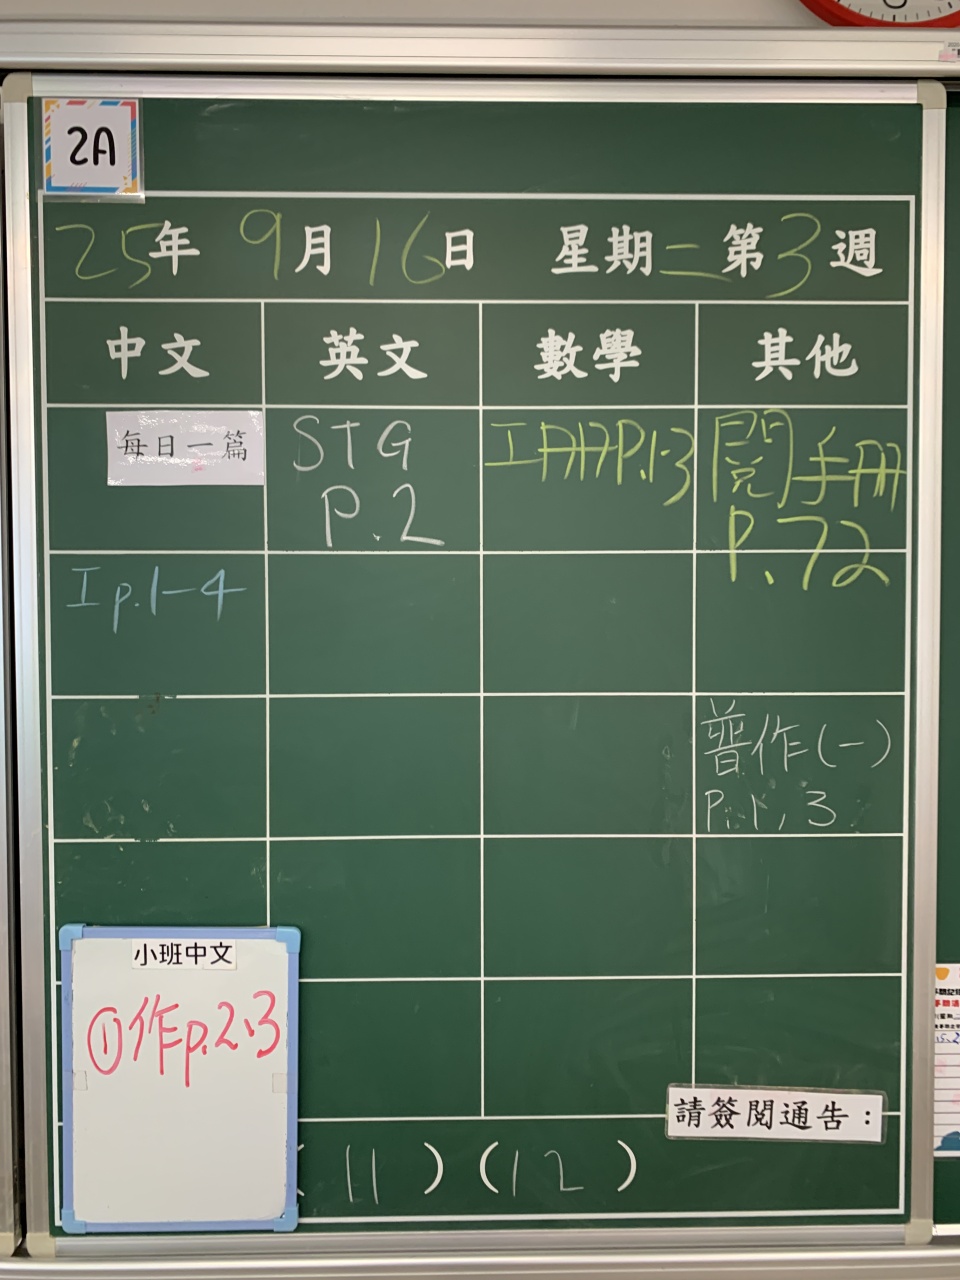 2A
25年 9月16日 星期二第3週
中文 英文 數學 其他
每日一篇
STG
P.2
工冊P.1-3
閱手冊
P.72
工p.1-4
普作(一)
P.1,3
小班中文
①作p.2、3
請簽閱通告：
11)(12)